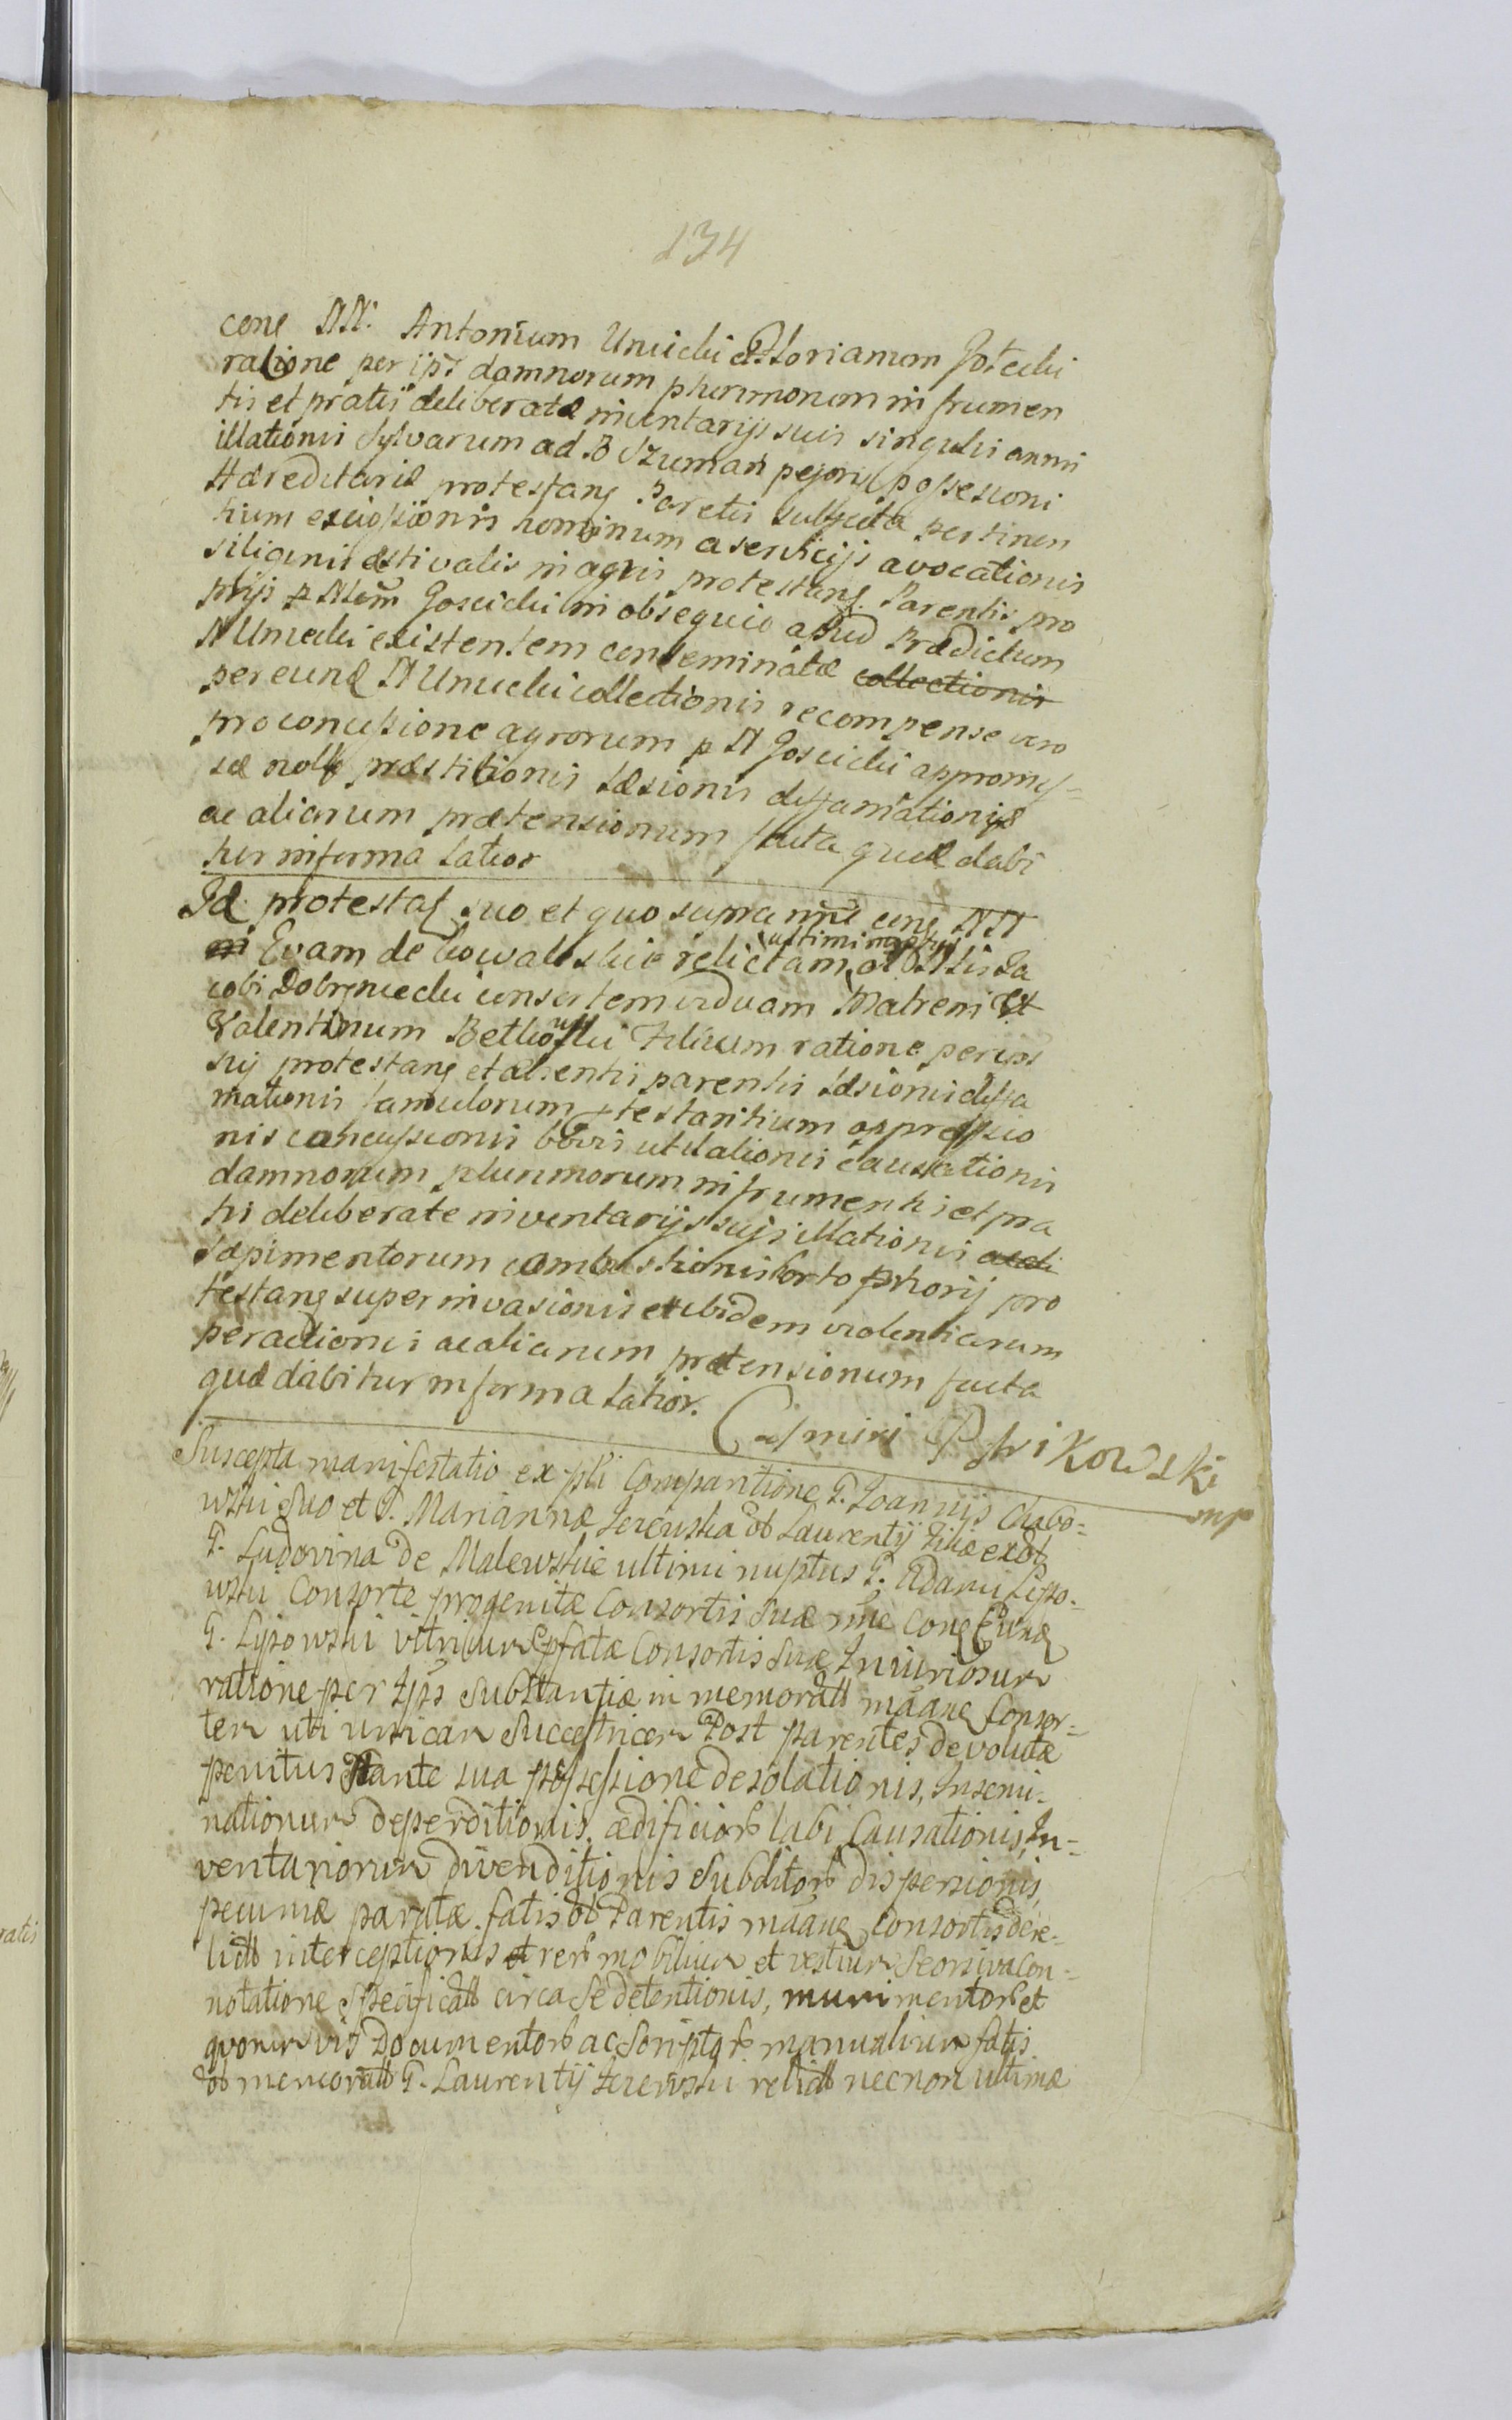 134
cone NN. Antonium Unicki et Florianum Gotecki
ratione per ips damnorum plurimorum in frumen
tis et pratis deliberatæ inventarijs suis singulis annis
illationis Sylvarum ad B Szuman possessioni
Hæreditariæ protestans Parentis subjecta pertinen
tium hominum a servicijs avocationis
siliginis æstivalis in agris protestans Parentis pro
prijs p Goscicki in obsequio apud Prædictum
N Unicki existentem conseminatæ collectionis
per eund N Unicki collectionis recompense vero
pro concessione agrorum p N Goscicki appromis=
sæ præstitionis Læsionis diffamationis
ac aliarum prætensionum facta quæ dabi
tur in forma latior
Id protestas suo et quo supra nne cone NN
Evam de relictam ultimi nuptus olim Ja
cobi consortem viduam Matrem et
Valentinum Filium ratione per ips
sui protestans et absentis parentis Læsionis diffa
mationis famulorum testantium oppressio
nis concussionis bovis causationis
damnorum plurimorum in frumentis et pra
tis deliberate inventarijs suis illationis
sæpimentorum combustionis horto pro
testans super invasionis et ibidem violentiarum
peractionis ac aliarum prætensionum facta
quæ dabitur in forma latior.
mp
Suscepta manifestatio ex pli Comparitione G. Joannis Chabo=
wski Suo et G. Mariannæ ol Laurentij Filiæ ex ol
G. Ludovina de Malewskie ultimi nuptus G. Adami Lyso-
wski Consorte progenitæ Consortis Suæ nne cone Eund
G. Lysowski vitricum pfatæ Consortis Suæ Injuriosum
ratione per Ips Substantiæ in memorat maane Consor=
tem uti unicam Successricem Post parentes devolutæ
penitus stante sua possessione desolationis, Insemi-
nationum deperditionis, ædificior labi Causationis, In-
ventariorum divenditionis Subditor dispersionis,
pecuniæ paratæ fatis ol Parentis maane Consortis dere-
lict interceptionis et rer mobilium et vestium Seorsiva con-
notatione Specificat circa Se detentionis, munimentor et
quorumvis Documentor ac Scriptor manualium fatis
ol memorat G. Laurentij relict necnon ultimæ